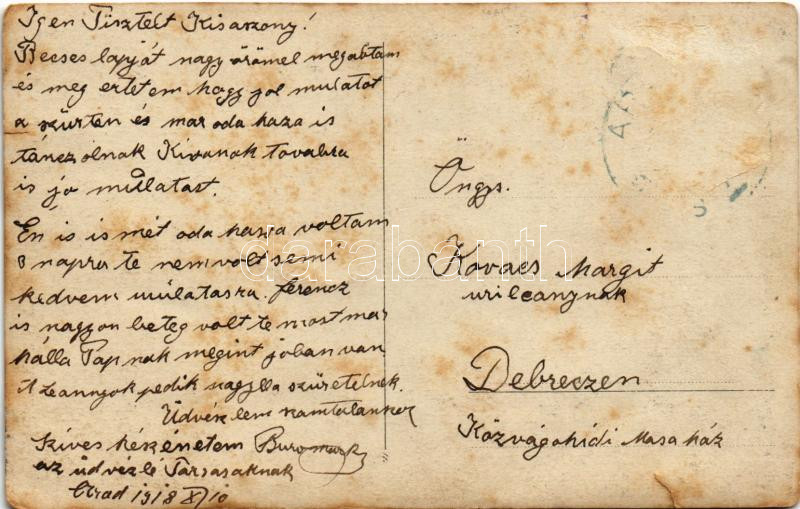 Igen Tisztelt Kisaszony!
Becses lapját nagy örömel megabtam
és meg ertetem hogy jol mulatot
a szürten és mar oda haza is
táncz olnak Kivanok tovabra
is jo múlatast.
Én is is mét oda haza voltam
8 napra te nem volt semi
kedvem múlatasra. Ferencz
is nagyon beteg volt te most mar
hálla Pap nak megint joban van
A Leannyok pedik nagylla szüretelnek.
Üdvéz lem
Szives készénetem
az üdvezlé Társasaknak
Arad 1918 X/10
Öngys.
Kovacs Margit
urileanynak
Debreczen
Közvágohídi Masa ház
darabanth